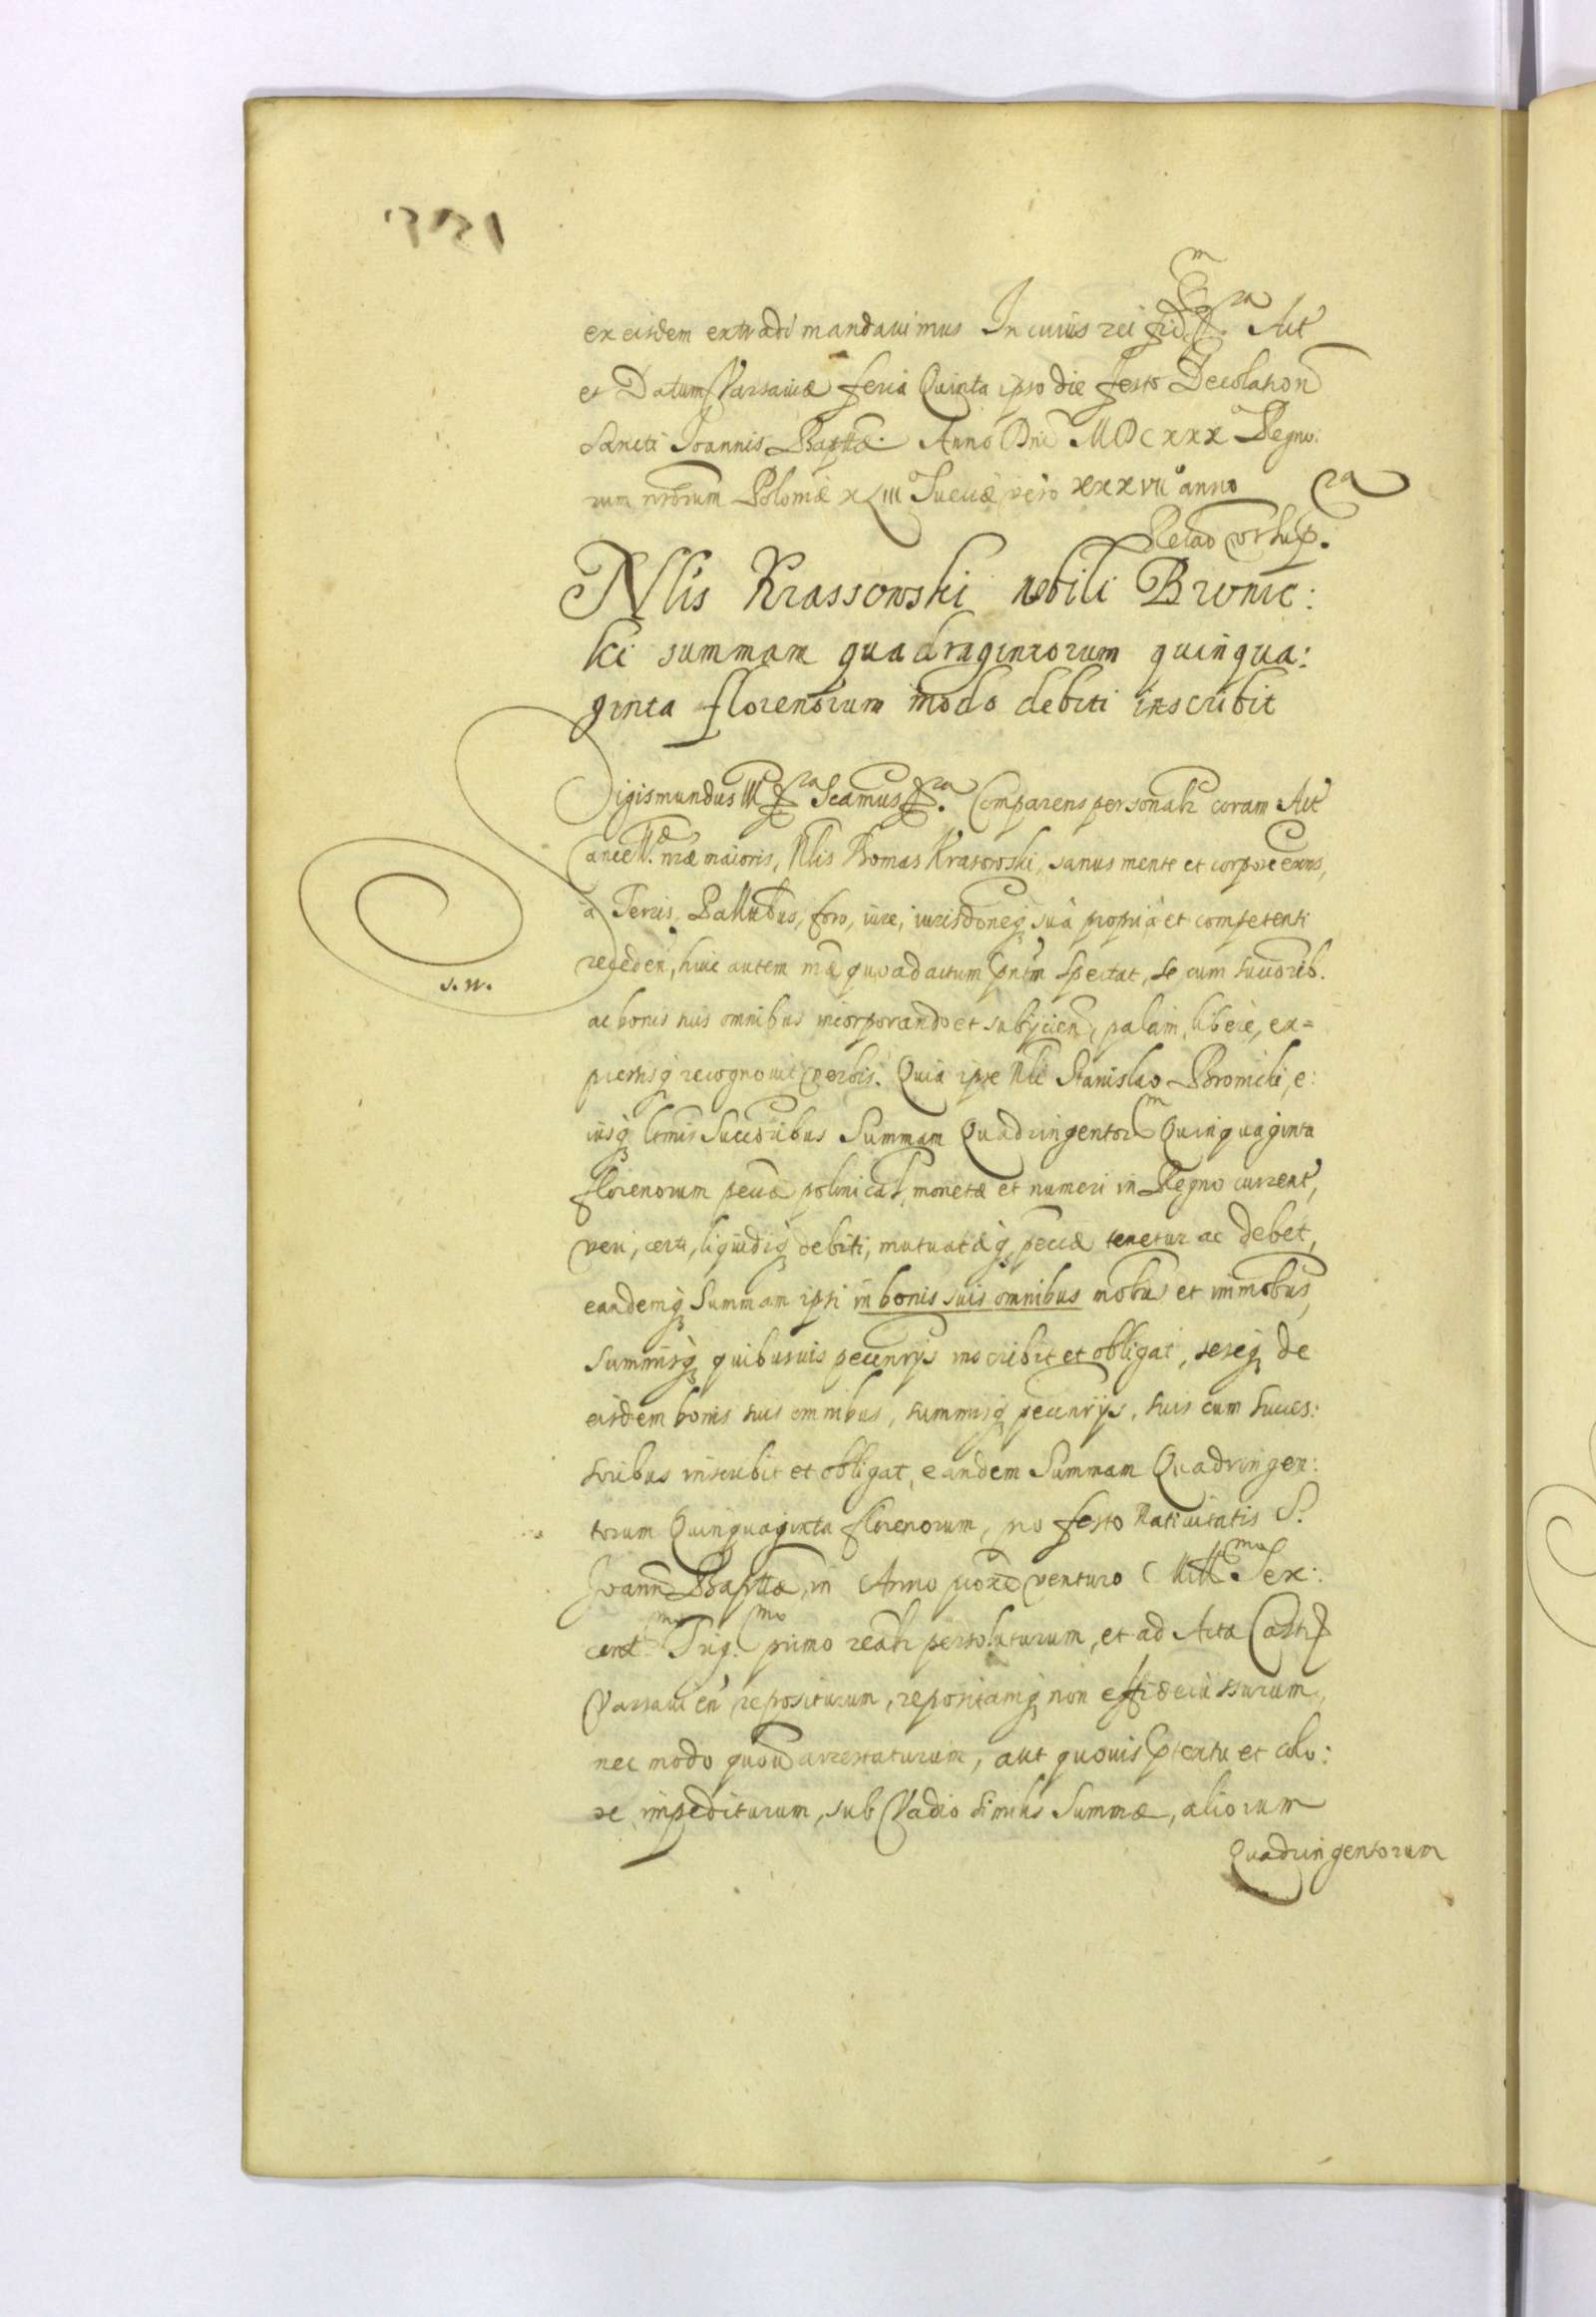 ex eisdem extradi mandauimus In cuius rei fid. Act
et Datum Varsauiæ feria Quinta ipso die festo Decolation
Sancti Ioannis Baptæ. Anno Dni MDCXXX Regno:
rum nrorum Poloniæ XLIII Sueciæ vero XXXVII anno
Relao vt sup.
Nlis Krassowski nobili Bronic:
ki summam quadragintorum quinqua:
ginta florenorum modo debiti inscribit
Sigismundus III Comparens personalr coram Act
Canc. nræ maioris, Nlis Thomas Krasowski, sanus mente et corpore exns,
a Terris, Pallatibus, foro, iure, iurisdoneq sua propria et competenti
receden, huic autem quoad actum pntm spectat, se cum succorib.
ac bonis suis omnibus incorporando et subijcien, palam, libere, ex=
pressisq recognouit verbis. Quia ipse Nli Stanislao Bronicki, e:
iusq ltmis Succoribus Summam Quadringentor Quinquaginta
florenorum pecuæ polonical, monetæ et numeri in Regno current,
veri, certi, liquidiq debiti, mutuatæq pecuæ tenetur ac debet,
eandemq Summam ipsi in bonis suis omnibus mobus et immobus,
Summisq quibusuis pecunrijs inscribit et obligat, seseq de
eisdem bonis suis omnibus, summisq pecunrijs, suis cum succes:
soribus inscribit et obligat, eandem Summam Quadringen:
torum Quinquaginta florenorum, pro festo Natiuitatis S.
Joann Baptæ, in Anno venturo Mill mo Sex:
cent mo Trig. mo primo realr persoluturum, et ad Acta Castr
Varsauien repositurum, repositamq non
nec modo quouis arrestaturum, aut quouis ptextu et colo:
re impediturum, sub Vadio similis Summæ, aliorum
Quadringentorum
S. N.